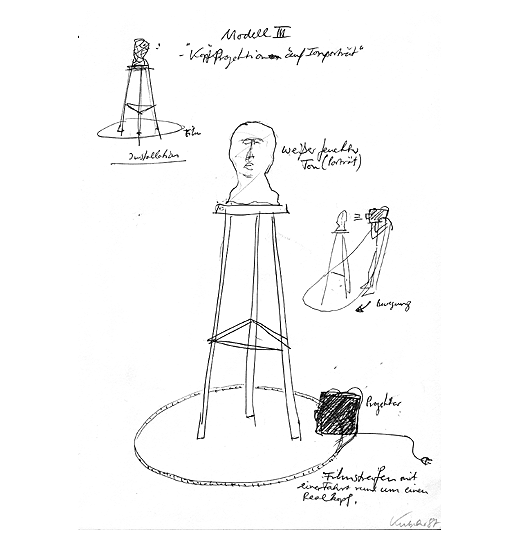 Modell III
- "Kopf Projektion auf Tonporträt"
Film
Installation
weißer feuchter
Ton (Porträt)
Bewegung
Projektor
Filmstreifen mit
einer Fahrt rund um einen
Realkopf.
87